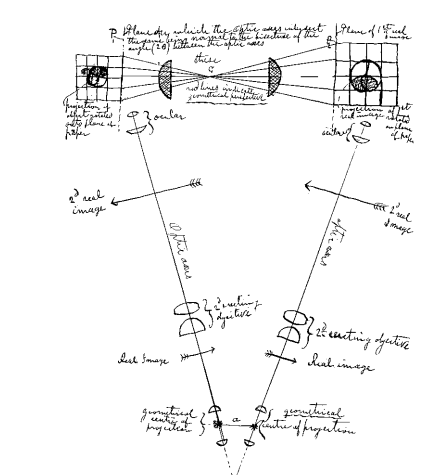 P. Plane in which the optic axes intersect
the same being normal to the bisectrix of the
angle (2θ) between the optic axes
Plane of 1st real
image
these
C
lines indicate
geometrical projection
projection of
object rotated
onto plane of
paper
projection of 1st
real image rotated
on plane
of paper
ocular
ocular
2d real
image
2d real
image
Optic axis
optic axis
2d erecting
objective
2d erecting objective
Real Image
Real image
geometrical
centre of
projection
a
geometrical
centre of projection